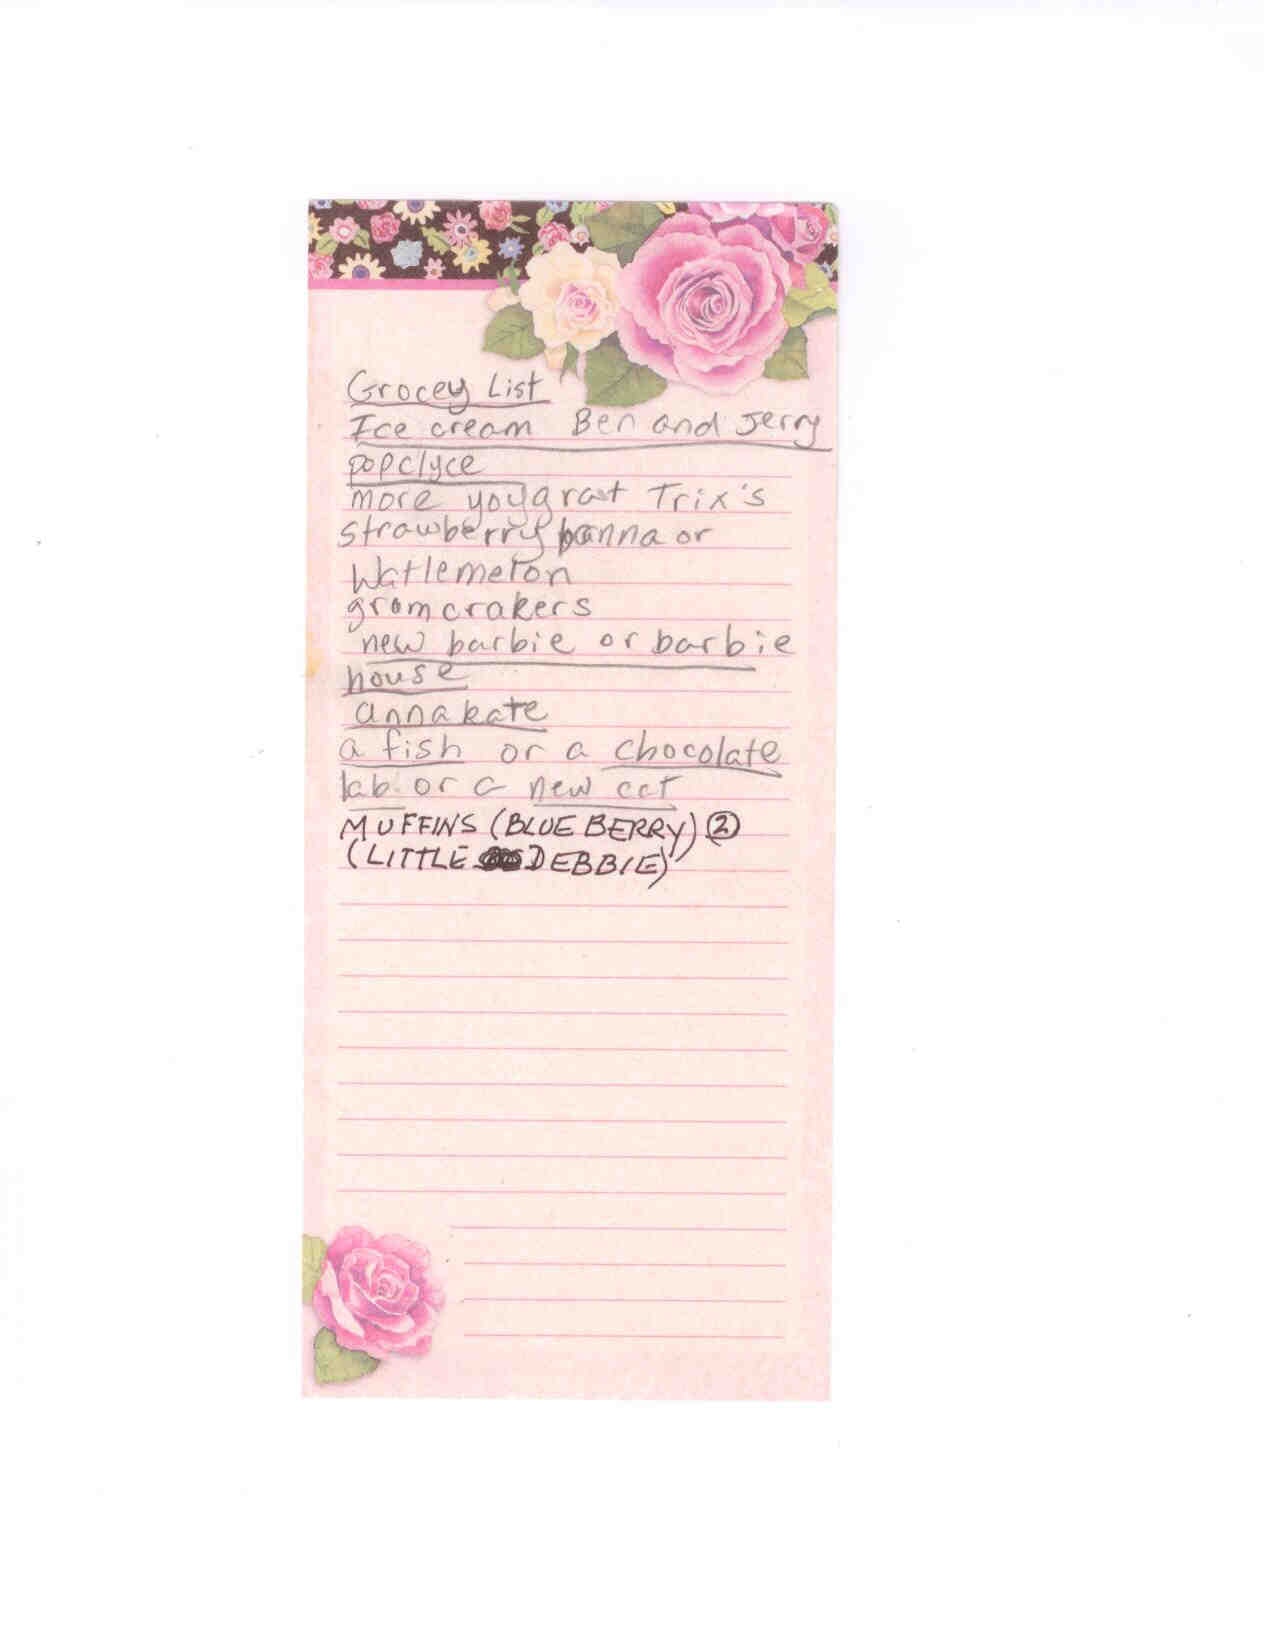 Grocey List
Ice cream Ben and Jerry
popclyce
more yoygrat Trix's
strawberry banna or
Watlemelon
gramcrakers
new barbie or barbie
house
annakate
a fish or a chocolate
lab or a new cat
MUFFINS (BLUE BERRY) ②
(LITTLE DEBBIE)